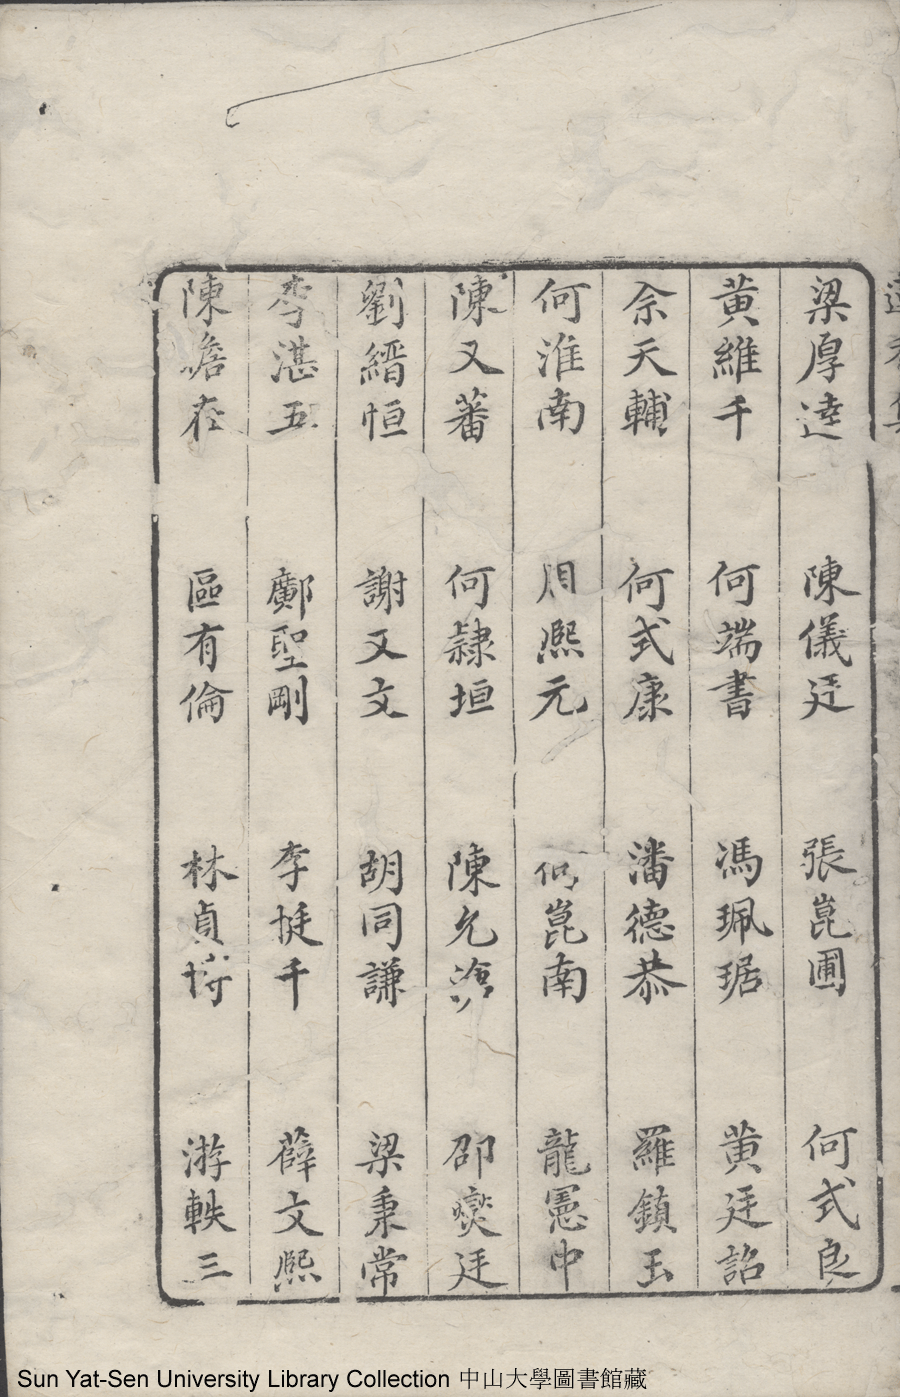 梁厚達　陳儀廷　張崑圃　何式良
黃維千　何端書　馮珮琚　黄廷詔
佘天輔　何式康　潘德恭　羅鎮玉
何淮南　周熈元　何崑南　龍憲中
陳又蕃　何隷垣　陳允　邵爕廷
劉縉恒　謝又文　胡同謙　梁秉常
李湛五　鄺聖剛　李挺千　薛文熈
陳詹在　區有倫　林貞博　游軼三
Sun Yat-Sen University Library Collection 中山大學圖書館藏